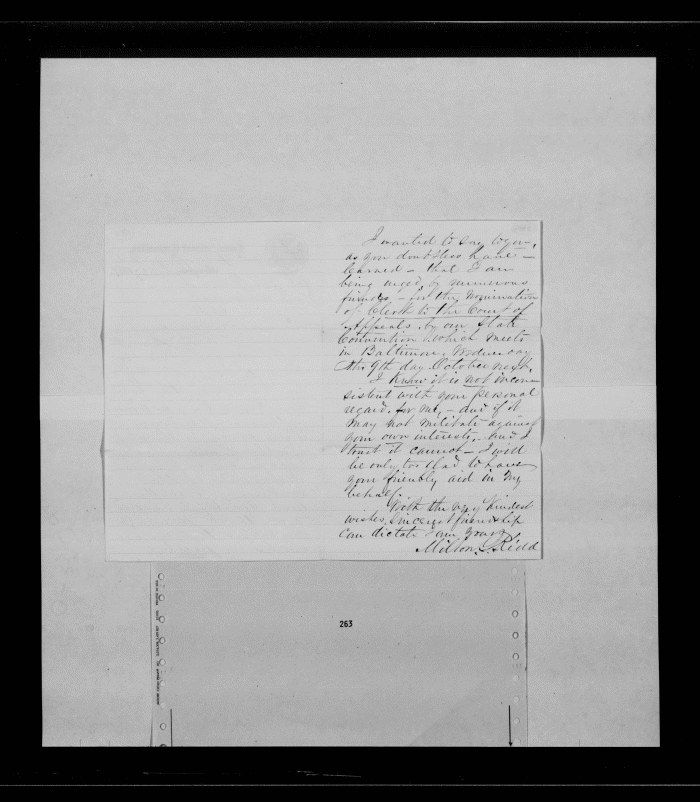 I wanted to say to you,
as you doubtless have –
learned – that I am
being urged by numerous
friends, – for the nomination
of Clerk to the Court of
Appeals, by our State
Convention which meets
in Baltimore, Wednesday
the 9th day October next.
I know it is not incon-
sistent with your personal
regard, for me, – and if it
may not militate against
your own interests, and I
trust it cannot – I will
be only too glad to have
your friendly aid in my
behalf.
With the very kindest
wishes, sincerest friendship
can dictate I am yours
Milton Kidd
263